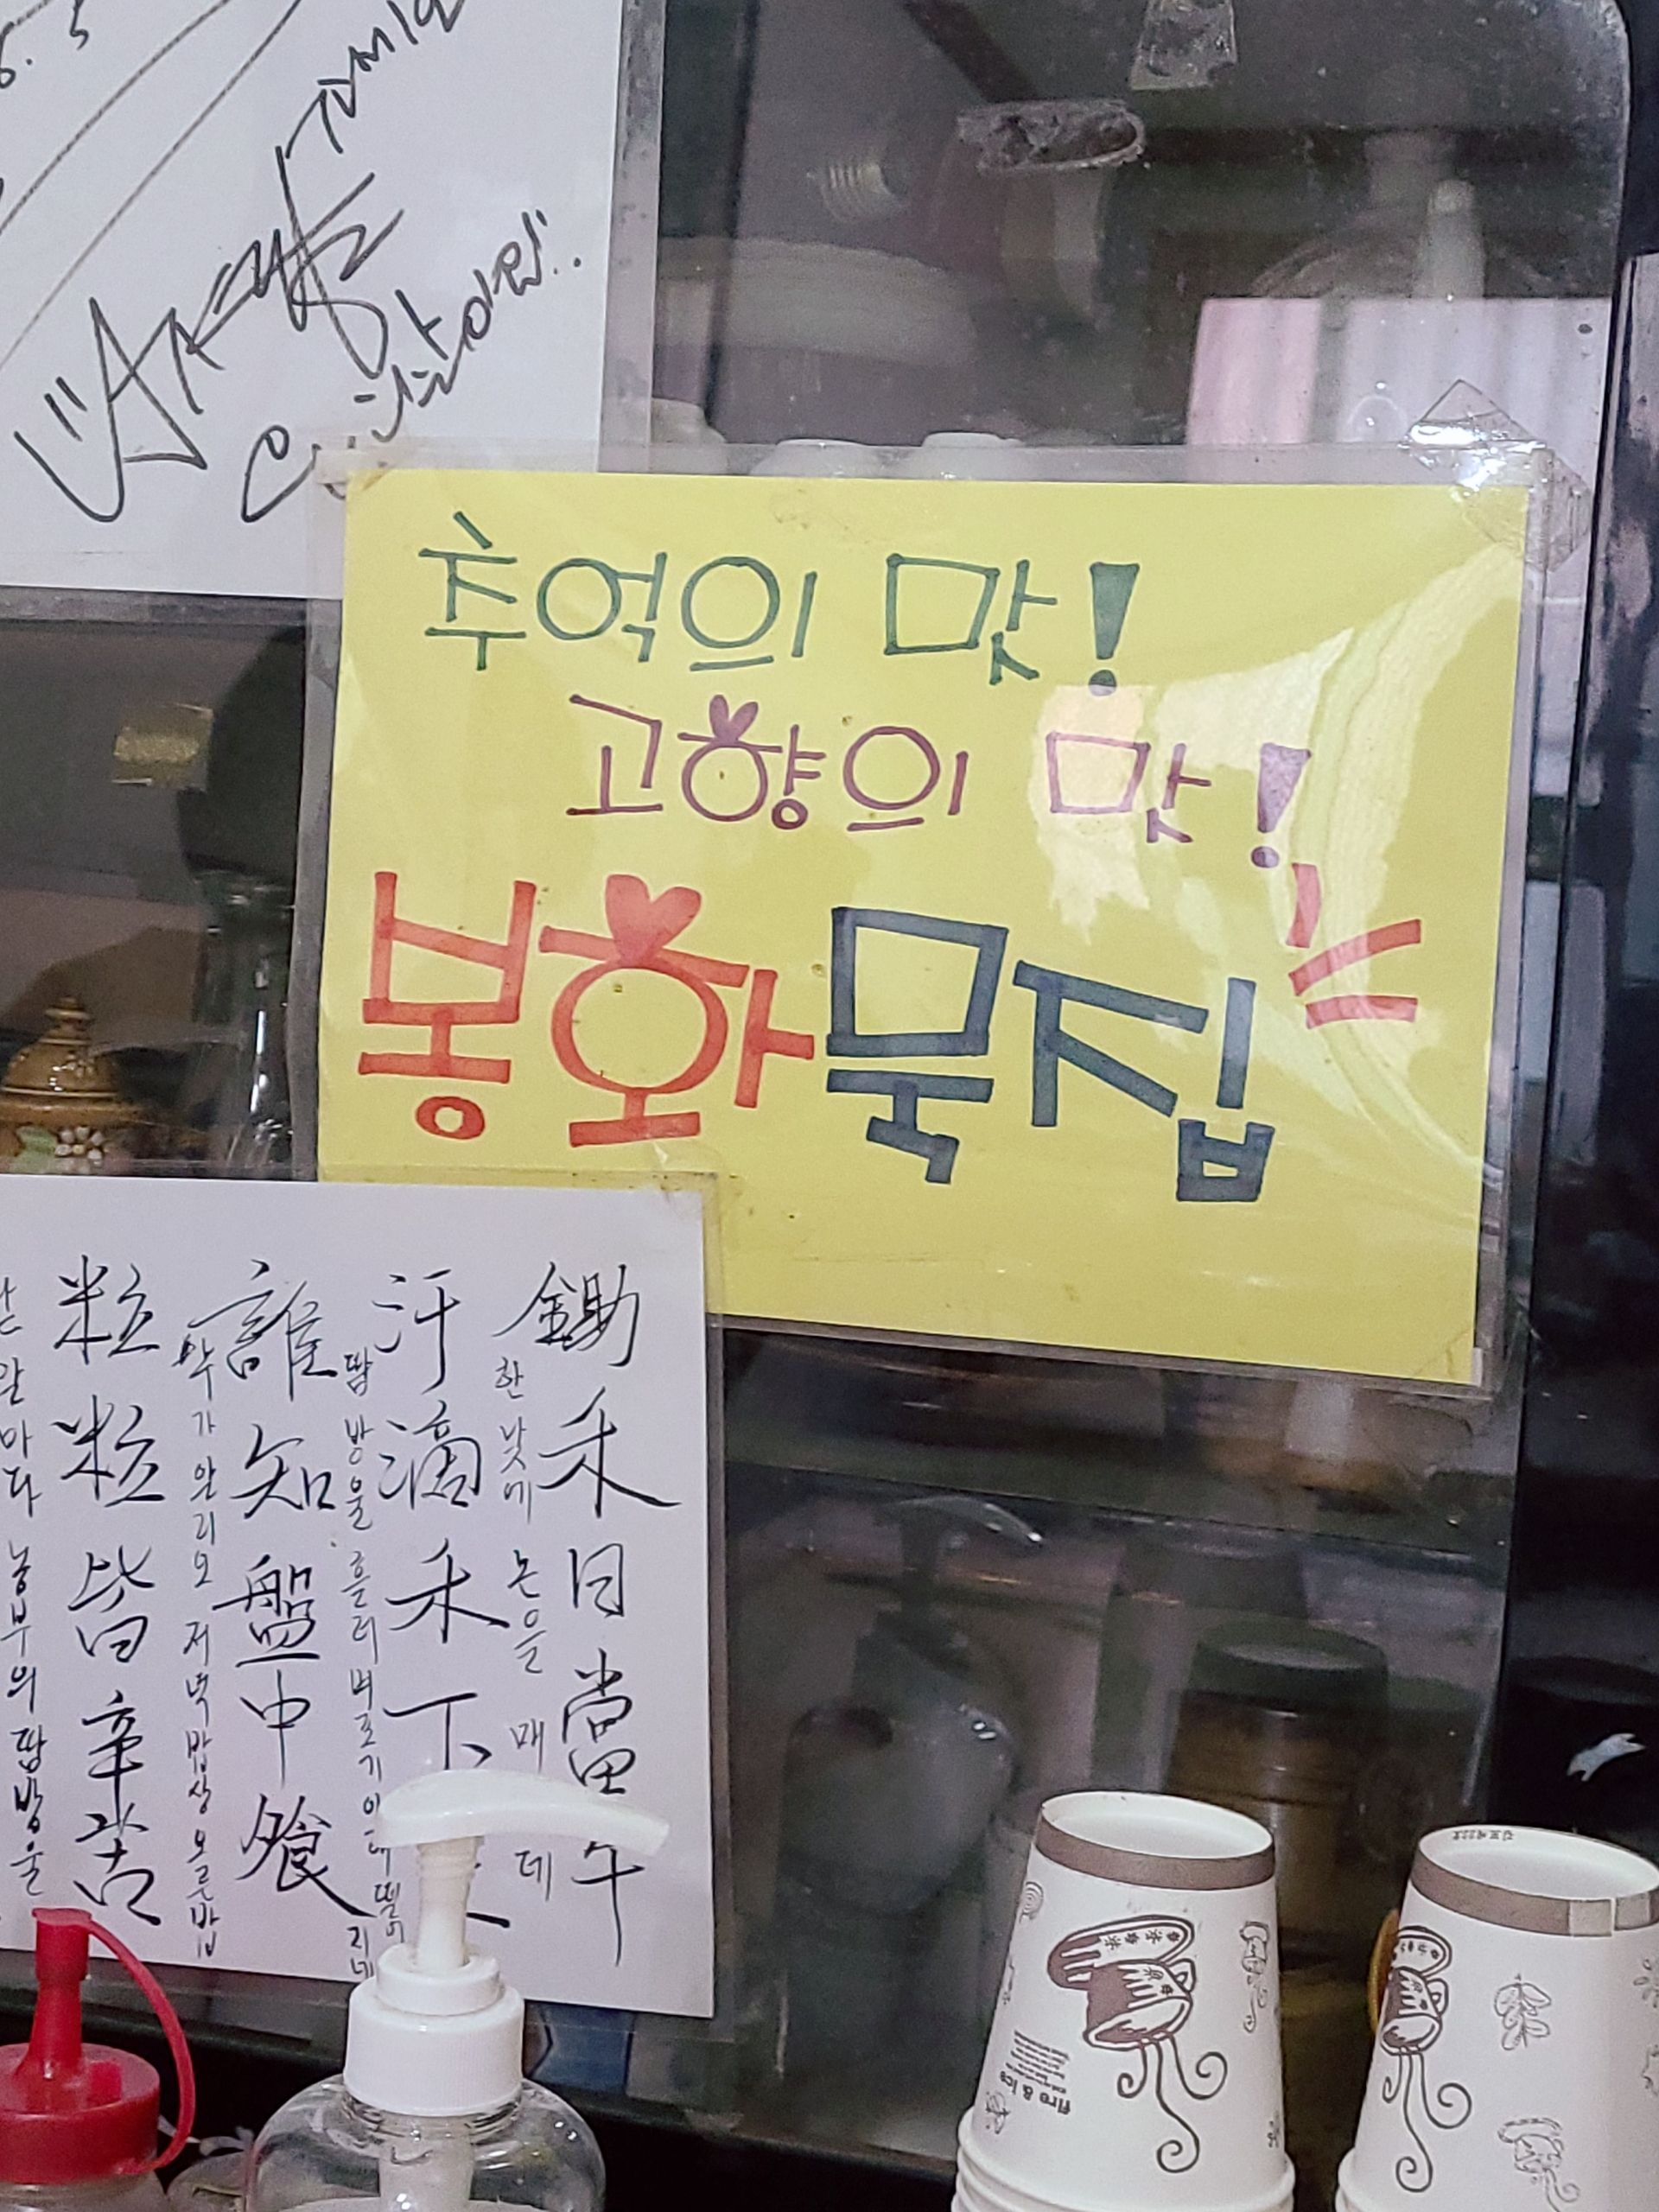 추억의 맛!
고향의 맛!
봉화묵집
鋤禾日當午
한낮에 논을 매 데
汗滴禾下
땀방울 흘러 벼포기 아래 떨어지네
誰知盤中飧
누가 알리오 저녁 밥상 오른 밥
粒粒皆辛苦
알마다 농부의 땀방울
fire & ice